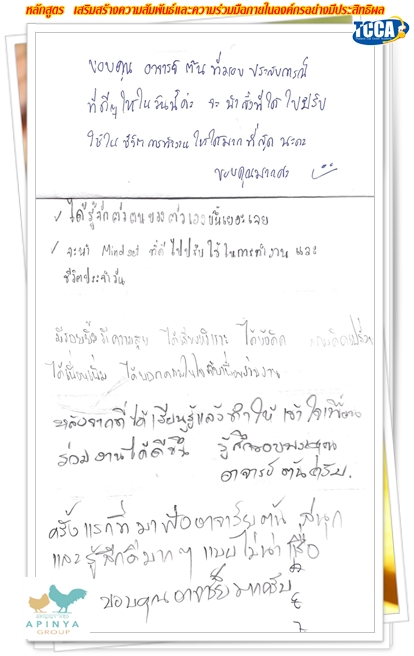 หลักสูตร เสริมสร้างความสัมพันธ์และความร่วมมือภายในองค์กรอย่างมีประสิทธิผล
TCCA
ขอบคุณ อาจารย์ ต้น ที่มอบ ประสบการณ์
ที่ดีๆ ให้ใน วันนี้ค่ะ จะ นำสิ่งที่ได้ ไปปรับ
ใช้ใน ชีวิตการทำงาน ให้ได้มาก ที่สุด นะคะ
ขอบคุณมากค่ะ
✓ ได้รู้จักตัวตนของตัวเองขึ้นเยอะเลย
✓ จะนำ Mindset ที่ดี ไปปรับใช้ในการทำงาน และ
ชีวิตประจำวัน
มีรอยยิ้ม มีความสุข ได้เสียงหัวเราะ ได้ข้อคิด
หลังจากที่ได้เรียนรู้แล้วทำให้เข้าใจเพื่อน
ร่วมงานได้ดีขึ้น รู้สึกขอบพระคุณ
อาจารย์ ต้นครับ.
ครั้งแรกที่มาพบอาจารย์ต้น สนุก
และรู้สึกดีมาก ๆ แบบไม่น่าเชื่อ
ขอบคุณอาจารย์มากครับ
APINYA
GROUP